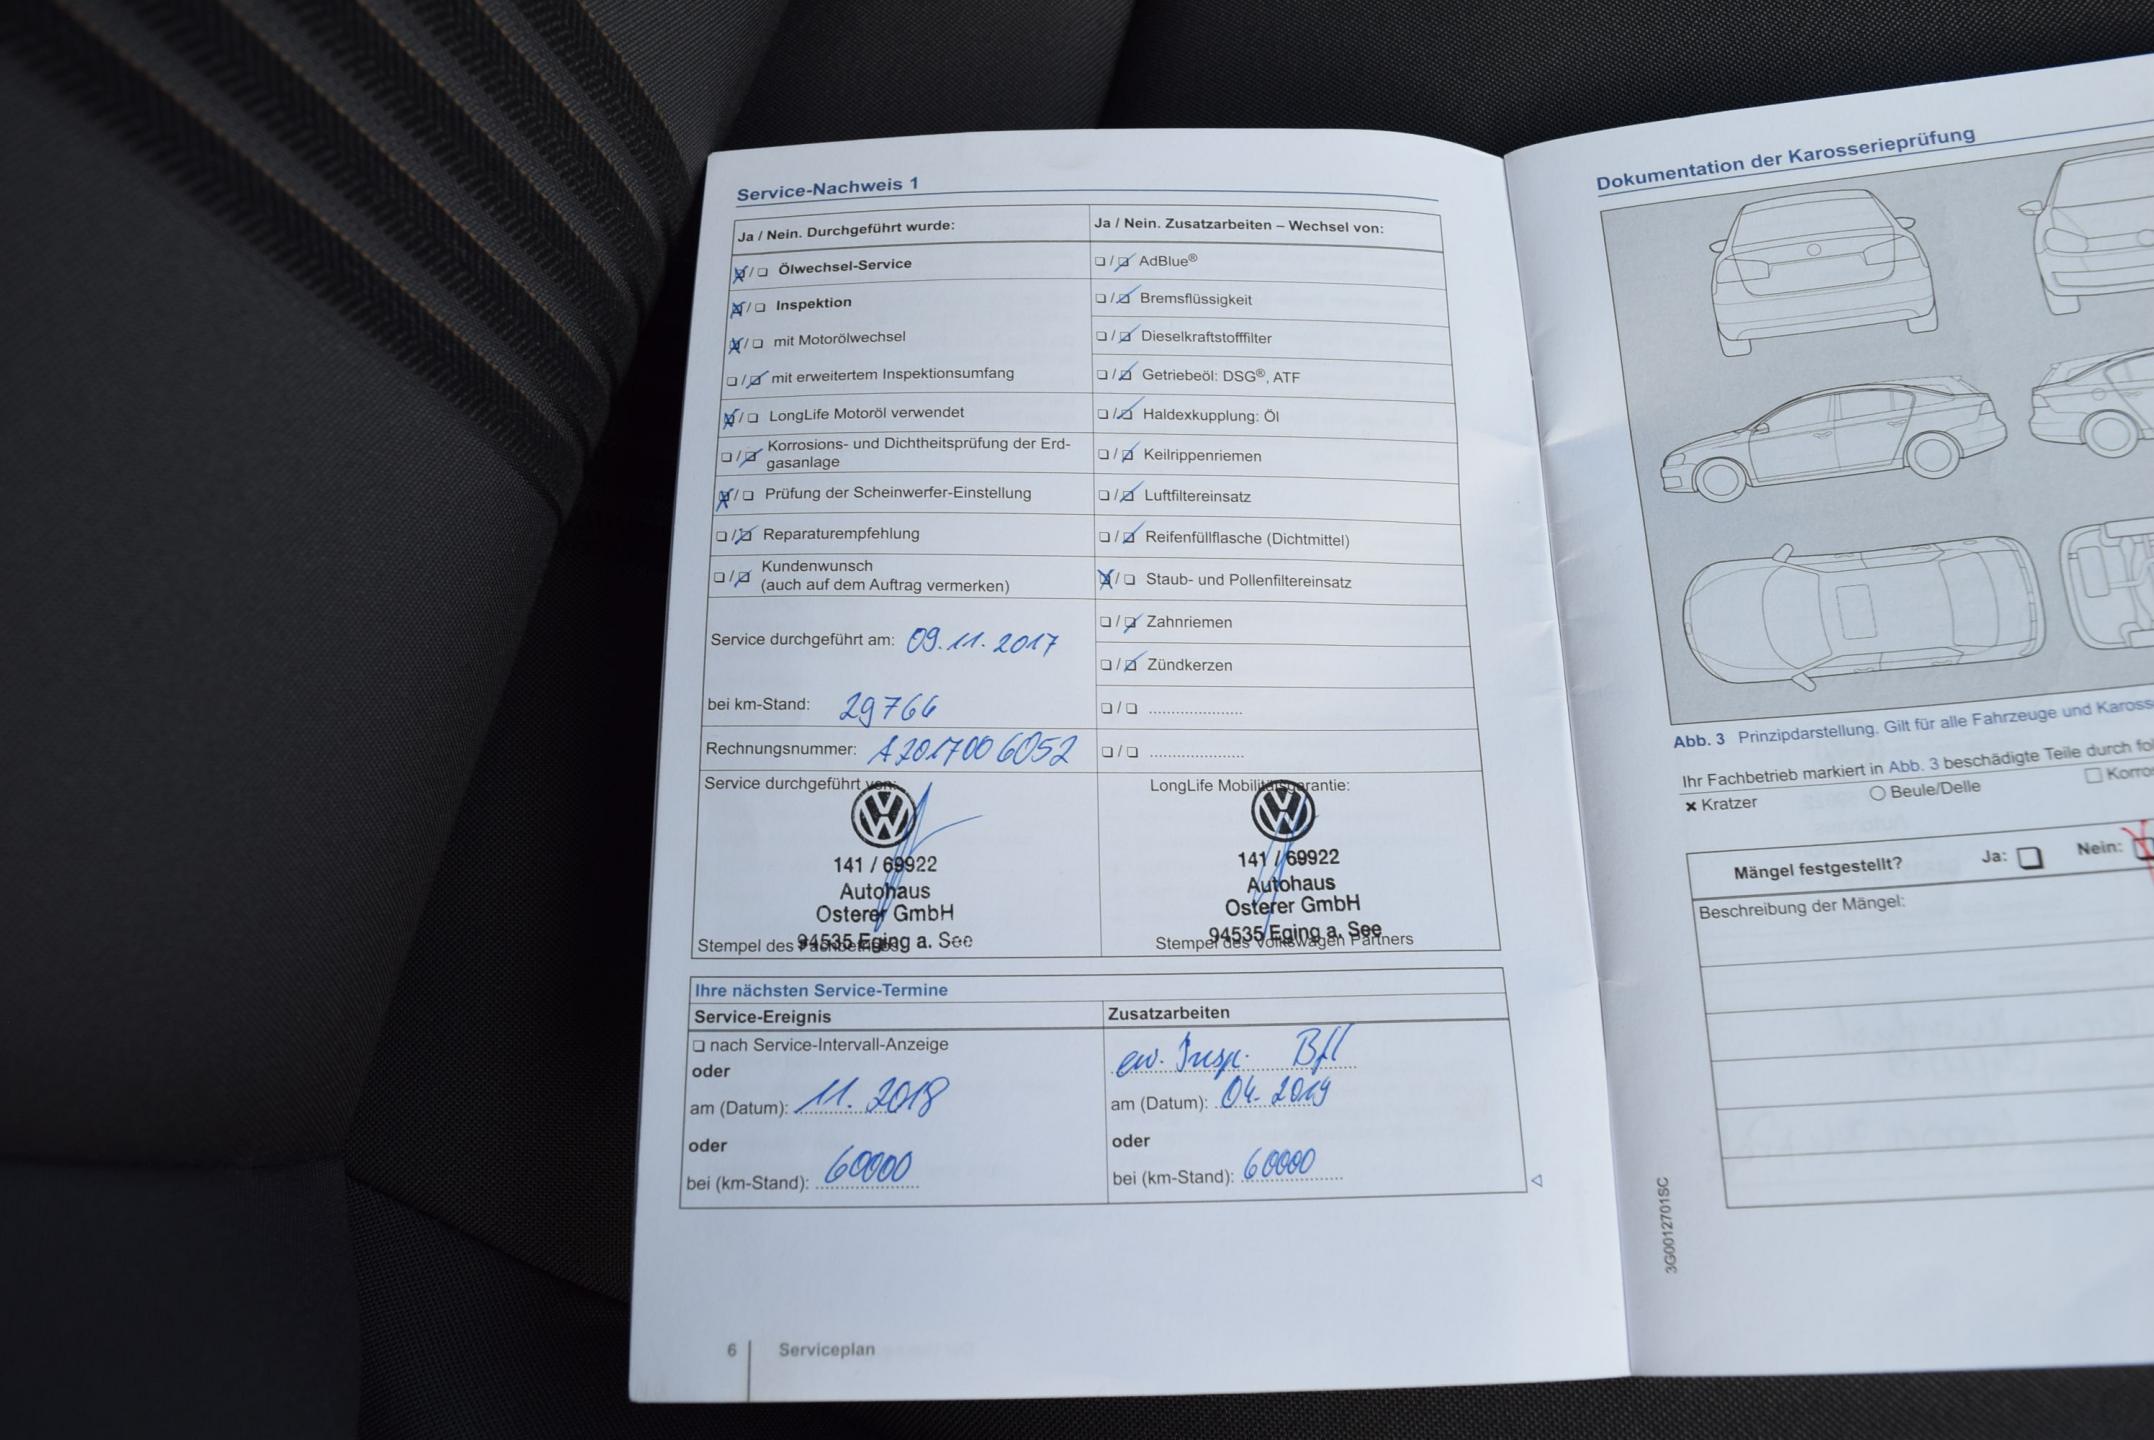 Service-Nachweis 1
Ja / Nein. Durchgeführt wurde:
Ölwechsel-Service
Inspektion
mit Motorölwechsel
mit erweitertem Inspektionsumfang
LongLife Motoröl verwendet
Korrosions- und Dichtheitsprüfung der Erd-
gasanlage
Prüfung der Scheinwerfer-Einstellung
Reparaturempfehlung
Kundenwunsch
(auch auf dem Auftrag vermerken)
Service durchgeführt am: 09.11.2017
bei km-Stand: 29766
Rechnungsnummer: A2017006052
Ja / Nein. Zusatzarbeiten – Wechsel von:
AdBlue®
Bremsflüssigkeit
Dieselkraftstofffilter
Getriebeöl: DSG®, ATF
Haldexkupplung: Öl
Keilrippenriemen
Luftfiltereinsatz
Reifenfüllflasche (Dichtmittel)
Staub- und Pollenfiltereinsatz
Zahnriemen
Zündkerzen
Service durchgeführt von:
141 / 69922
Autohaus
Osterer GmbH
94535 Eging a. See
Stempel des Fachbetriebs
LongLife Mobilitätsgarantie:
141 / 69922
Autohaus
Osterer GmbH
94535 Eging a. See
Stempel des Volkswagen Partners
Ihre nächsten Service-Termine
Service-Ereignis
nach Service-Intervall-Anzeige
oder
am (Datum): 11. 2018
oder
bei (km-Stand): 60000
Zusatzarbeiten
ew. Insp. Bfl
am (Datum): 04. 2019
oder
bei (km-Stand): 60000
6 Serviceplan
Dokumentation der Karosserieprüfung
Abb. 3 Prinzipdarstellung. Gilt für alle Fahrzeuge und
Ihr Fachbetrieb markiert in Abb. 3 beschädigte Teile durch
Kratzer
Beule/Delle
Mängel festgestellt? Ja: Nein:
Beschreibung der Mängel:
3G0012701SC